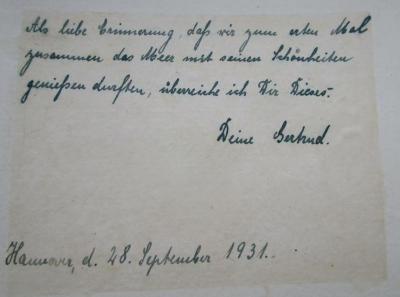 Als liebe Erinnerung, daß wir zum ersten Mal
zusammen das Meer mit seinen Schönheiten
genießen durften, überreiche ich Dir Dieses.
Deine Gertrud.
Hannover, d. 28. September 1931.